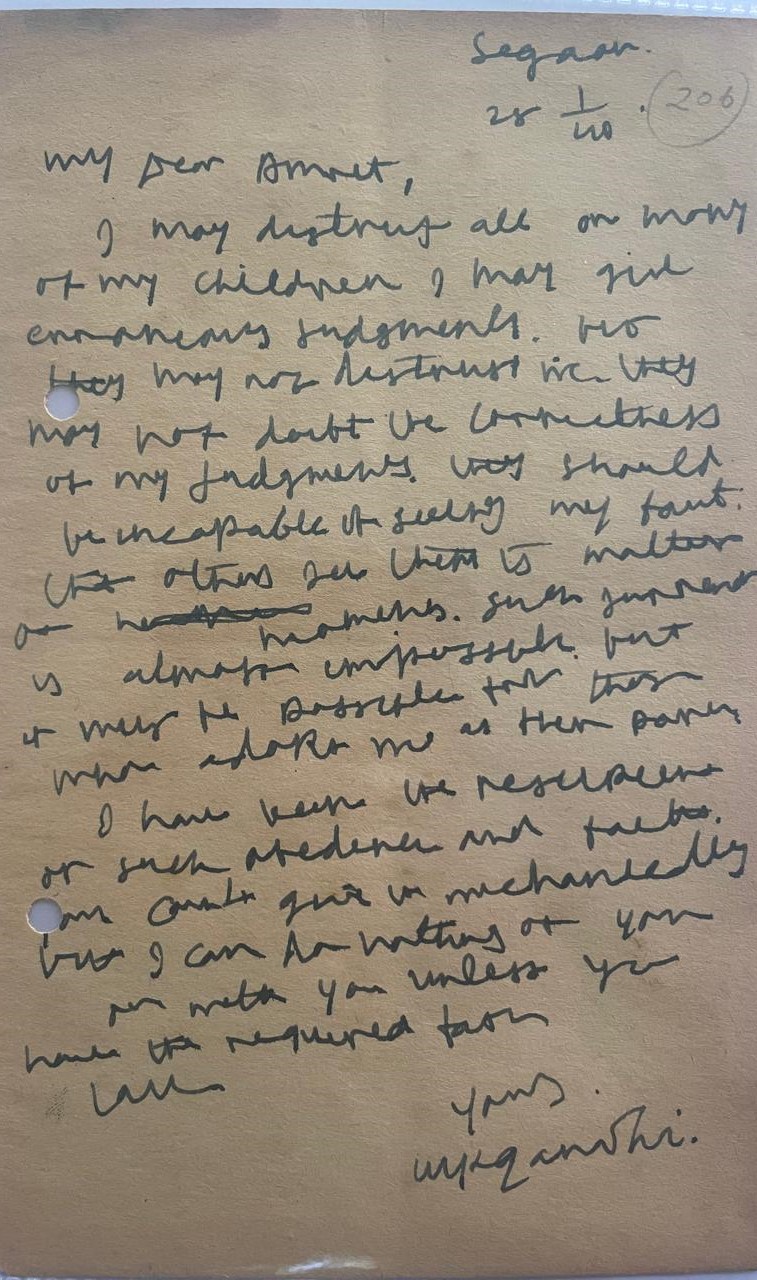 Segaon.
25 1/40. (206)
My dear Amrit,
I may distrust all or many
of my children I may give
erroneous judgments. But
they may not distrust me. They
may not doubt the correctness
of my judgments. They should
be incapable of seeing my fault.
That others see them is matter
of no moment. Such surrender
is almost impossible. But
it must be possible for those
who adopt me as their parent.
I have been the recipient
of such obedience and faith.
You can't give it mechanically
but I can do nothing of you
or with you unless you
have the required faith
Love
Yours.
MKGandhi.